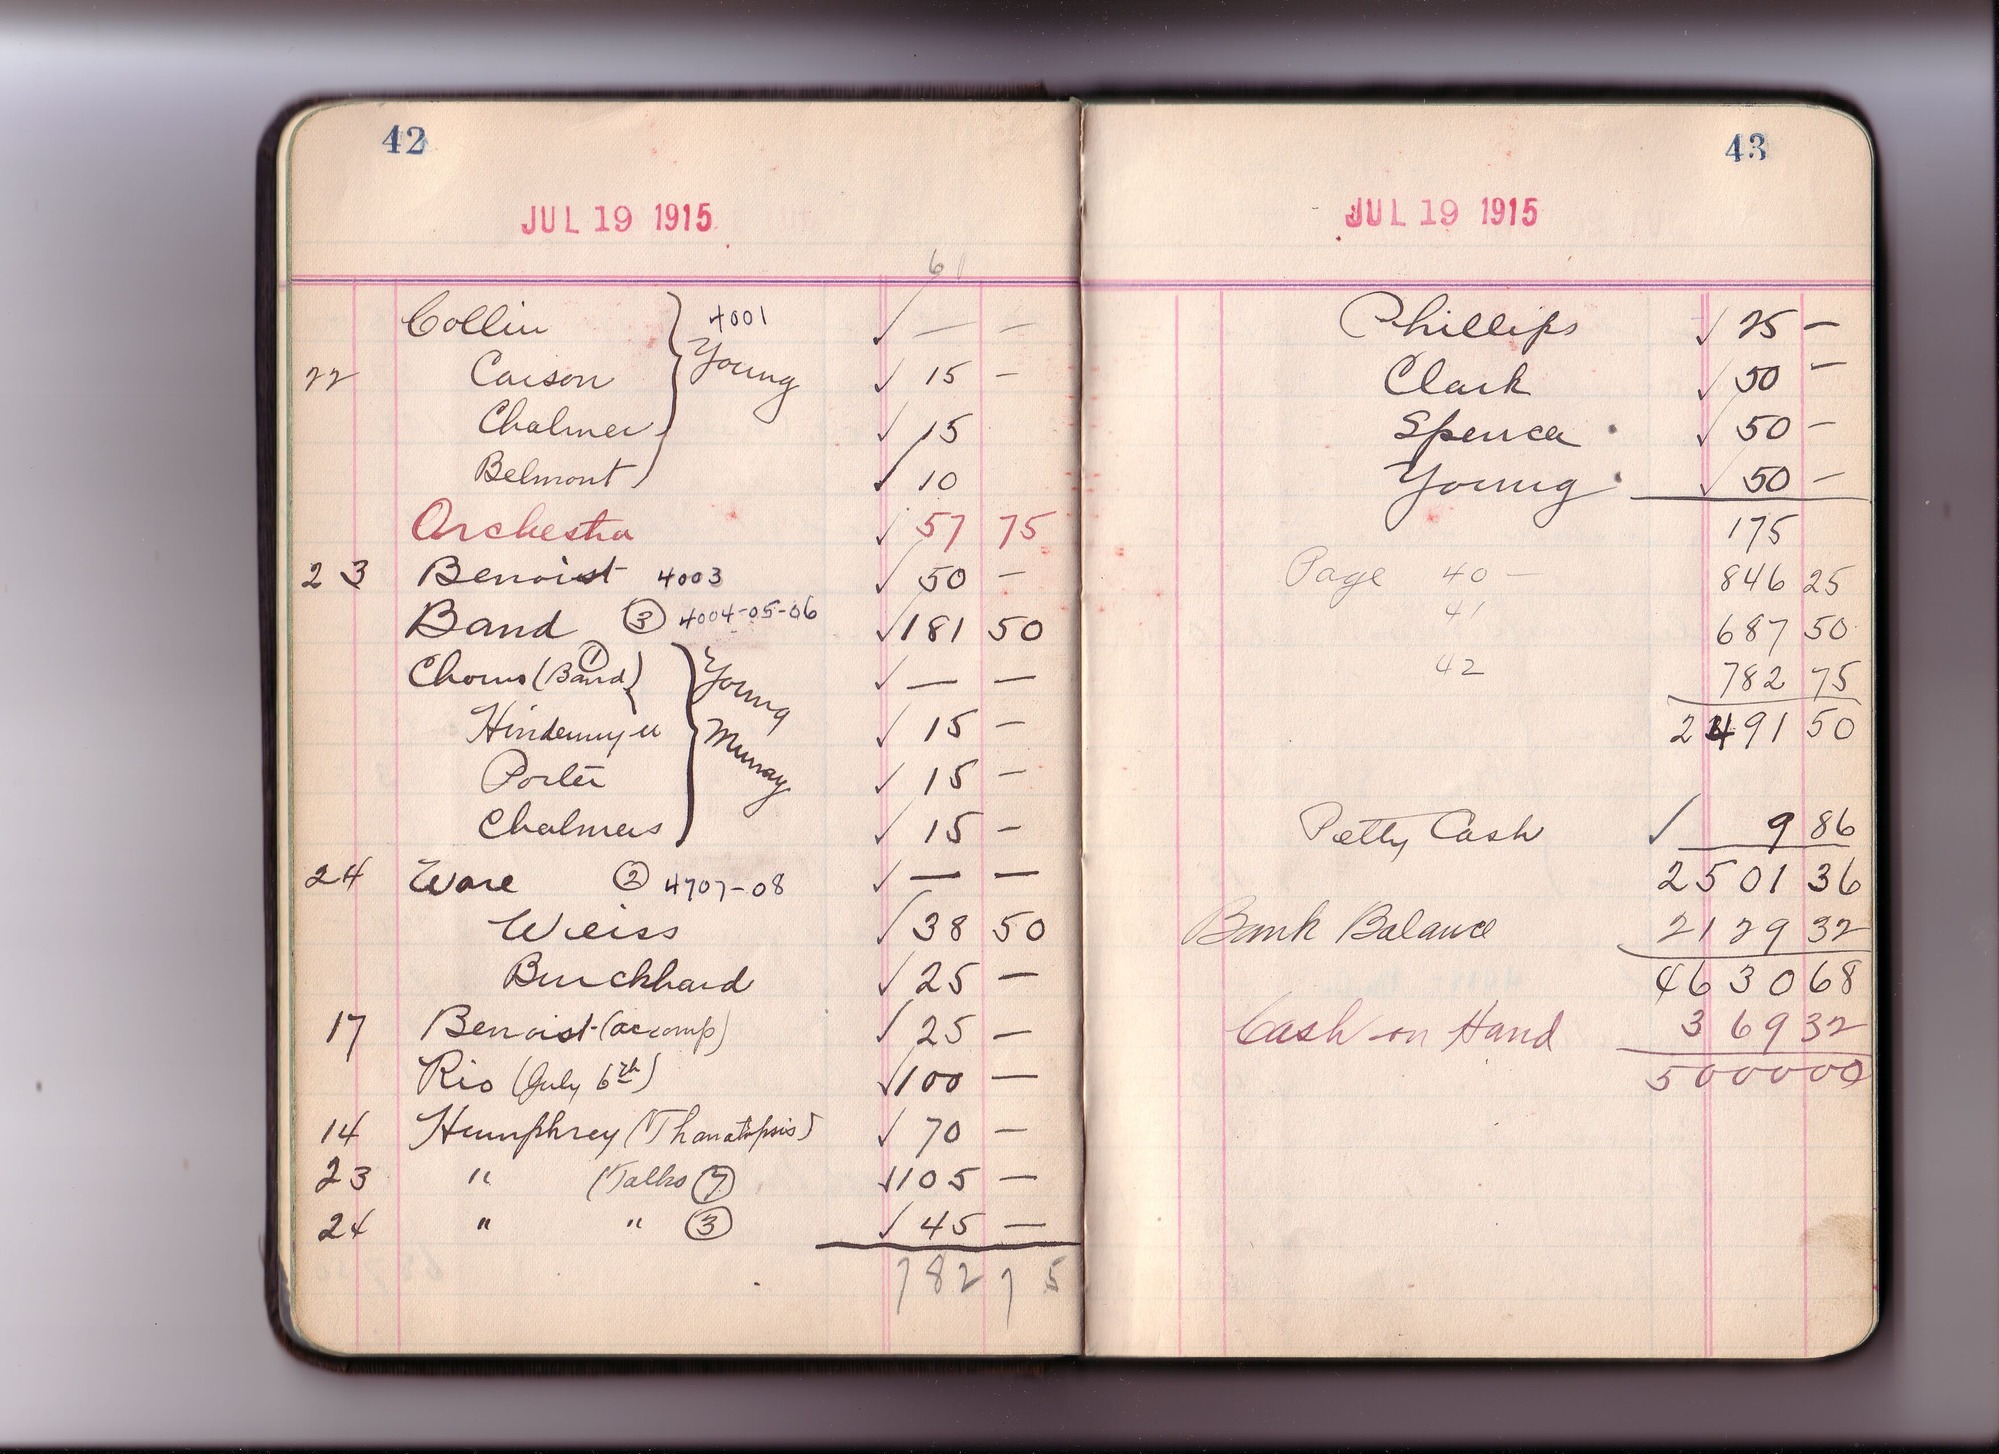 42
JUL 19 1915
61
Collin 4001 ✓ — —
22 Carson Young ✓ 15 —
Chalmer ✓ 15
Belmont ✓ 10
Orchestra ✓ 57 75
23 Benoist 4003 ✓ 50 —
Band ③ 4004-05-06 ✓ 181 50
Chorus (Band) ① Young ✓ — —
Hindermyer Murray ✓ 15 —
Porter ✓ 15 —
Chalmers ✓ 15 —
24 Ware ② 4707-08 ✓ — —
Weiss ✓ 38 50
Burckhard ✓ 25 —
17 Benoist (accomp) ✓ 25 —
Rio (July 6th) ✓ 100 —
14 Humphrey (Thanatopsis) ✓ 70 —
23 " (Talks ⑦ ✓ 105 —
24 " " ③ ✓ 45 —
782 75
43
JUL 19 1915
Phillips ✓ 25 —
Clark ✓ 50 —
Spencer ✓ 50 —
Young ✓ 50 —
175
Page 40 — 846 25
41 687 50
42 782 75
2491 50
Petty Cash ✓ 9 86
2501 36
Bank Balance 2129 32
4630 68
Cash on Hand 369 32
5000 00